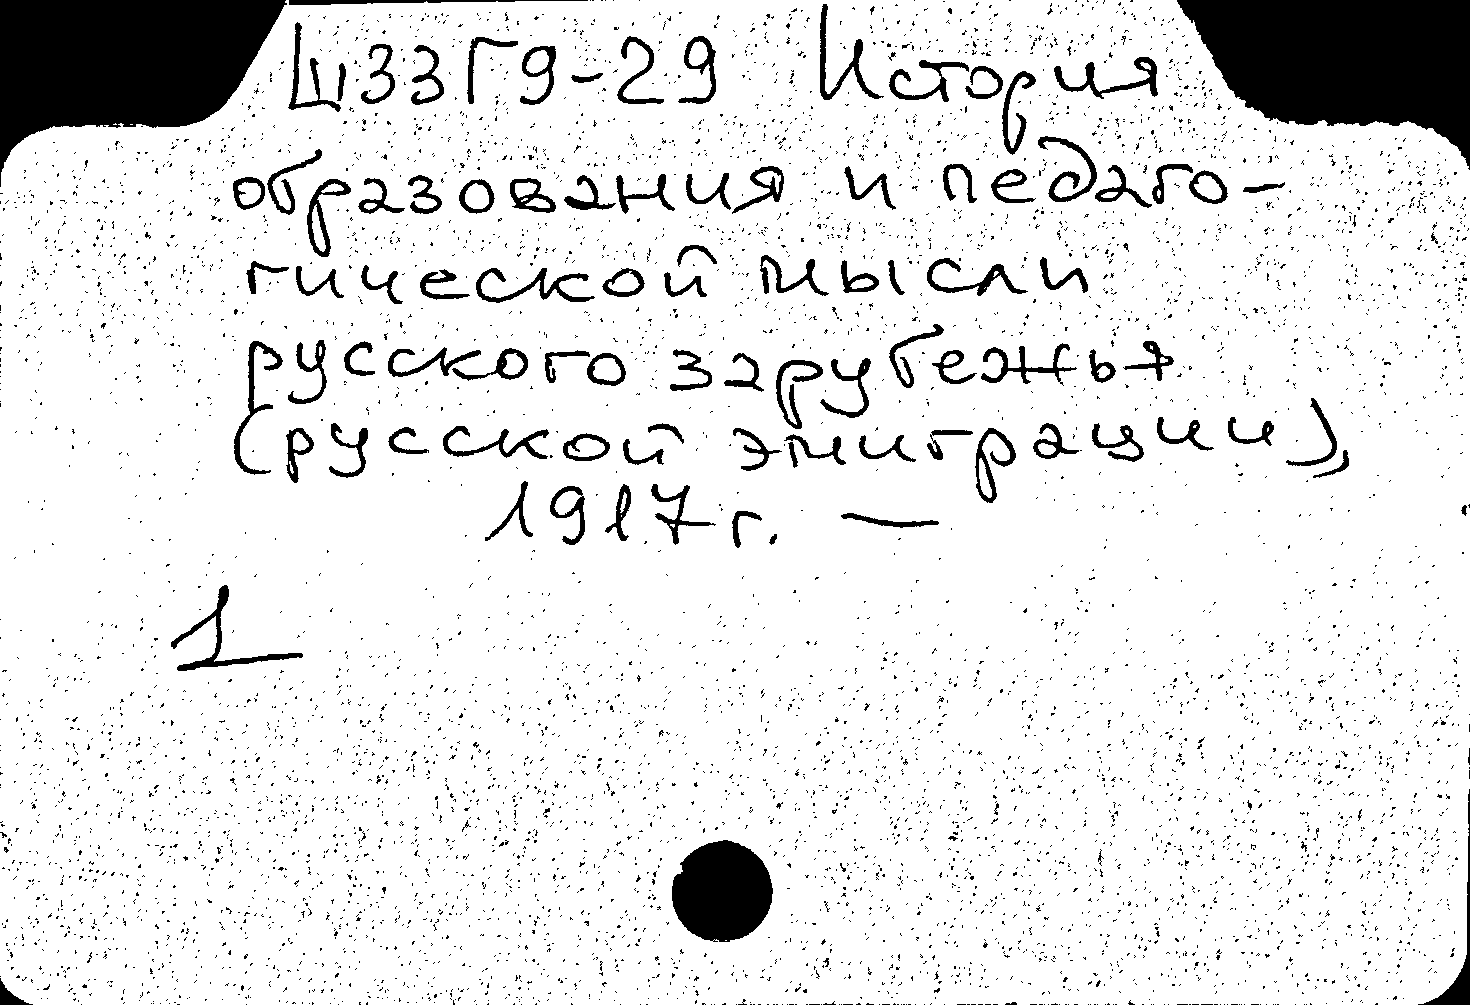 Ш33Г9-29 История
образования и педаго-
гической мысли
русского зарубежья
(русской эмиграции),
1917 г. —
1